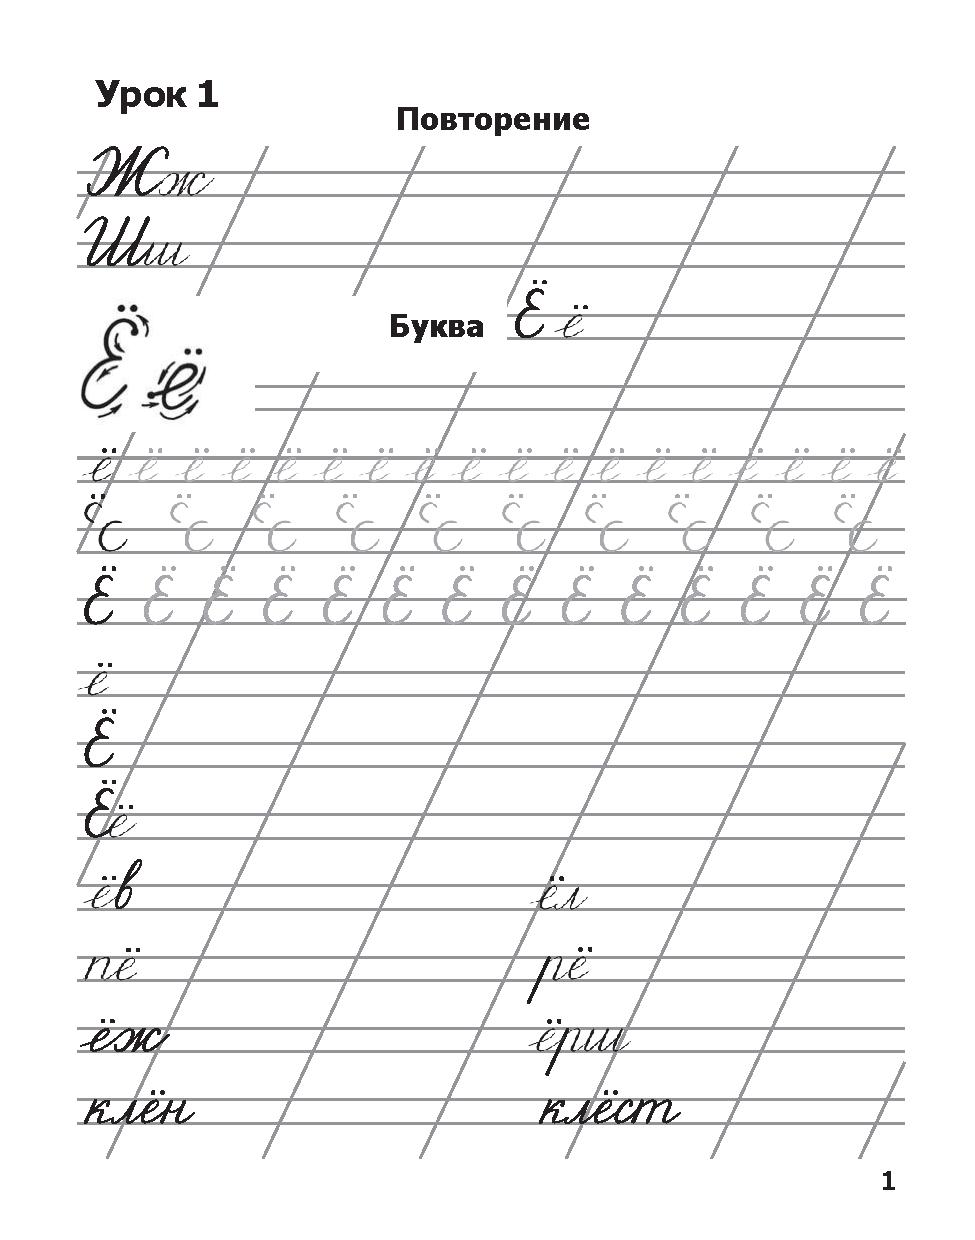 Урок 1
Повторение
Жж
Шш
Буква Ё ё
Ё ё
ё ё ё ё ё ё ё ё ё ё ё ё ё ё ё ё ё ё
Ё Ё Ё Ё Ё Ё Ё Ё Ё Ё Ё Ё Ё Ё
ё
Ё
Ёё
ёв ёл
пё рё
ёж ёрш
клён клёст
1